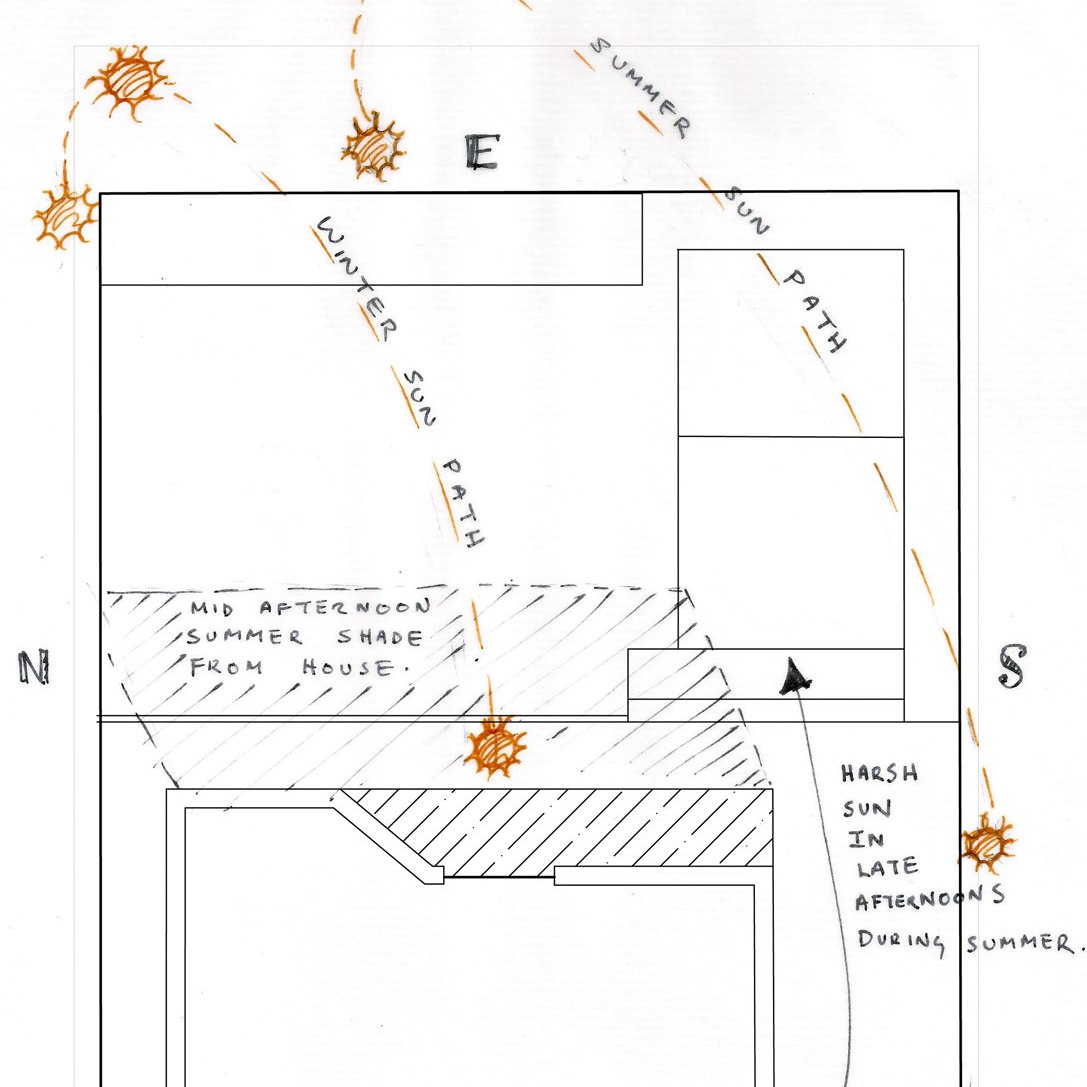 SUMMER SUN PATH
E
WINTER SUN PATH
MID AFTERNOON
SUMMER SHADE
FROM HOUSE.
N
S
HARSH
SUN
IN
LATE
AFTERNOONS
DURING SUMMER.